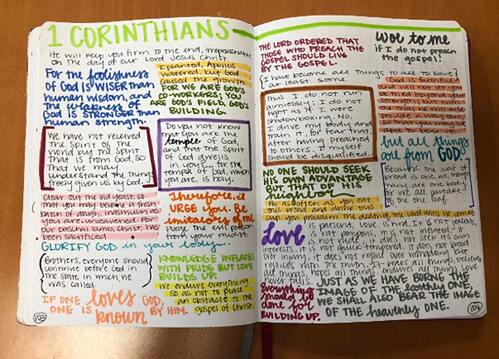 1 CORINTHIANS
He will keep you firm to the end, irreproachable
on the day of our Lord Jesus Christ.
For the foolishness
of God is WISER than
human wisdom, and
the weakness of
God is STRONGER than
human strength.
I planted, Apollos
watered, but God
caused the growth.
FOR WE ARE GOD'S
CO-WORKERS; YOU
ARE GOD'S FIELD, GOD'S
BUILDING.
We have not received
the Spirit of the
world but the Spirit
that is from God, so
that we may
understand the things
freely given us by God.
Do you not know
that you are the
temple of God,
and that the Spirit
of God dwells
in you?... for the
temple of God, which
you are, is holy.
Clear out the old yeast, so
that you may become a fresh
batch of dough, inasmuch as
you are unleavened. For
our paschal lamb, Christ, has
been sacrificed.
Therefore, I
URGE you, Be
imitators of me.
Purge the evil person
from your midst.
GLORIFY GOD in your body.
Brothers, everyone should
continue before God in
the state in which he
was called.
KNOWLEDGE INFLATES
WITH PRIDE BUT LOVE
BUILDS UP.
We endure everything
so as not to place
an obstacle to the
gospel of Christ.
IF ONE loves GOD,
ONE IS known BY HIM.
THE LORD ORDERED THAT
THOSE WHO PREACH THE
GOSPEL SHOULD LIVE
BY THE GOSPEL.
Woe to me
if I do not preach
the gospel!
I have become all things to all, to save
at least some.
Thus I do not run
aimlessly; I do not
fight as if I were
shadowboxing. No,
I drive my body and
train it, for fear that,
after having preached
to others, I myself
should be disqualified.
God is faithful
and will not let you
be tried beyond your
strength; but with
able to bear it.
but all things
are from GOD.
Because the loaf of
bread is one, we, though
many, are one body,
for we all partake of
the one loaf.
NO ONE SHOULD SEEK
HIS OWN ADVANTAGE
BUT THAT OF HIS
neighbor
For as often as you eat
this bread and drink this
cup, you proclaim the death of the Lord until he comes.
Love is patient, love is kind. It is not jealous,
is not pompous, it is not inflated, it
is not rude, it does not seek its own
interests, it is not quick-tempered, it does not brood
over injury, it does not rejoice over wrongdoing but
rejoices with the truth. It bears all things, believes
all things, hopes all things, endures all things. Love
never fails.
Everything
should be
done for
BUILDING UP.
JUST AS WE HAVE BORNE THE
IMAGE OF THE earthly ONE,
WE SHALL ALSO BEAR THE IMAGE
OF the heavenly ONE.